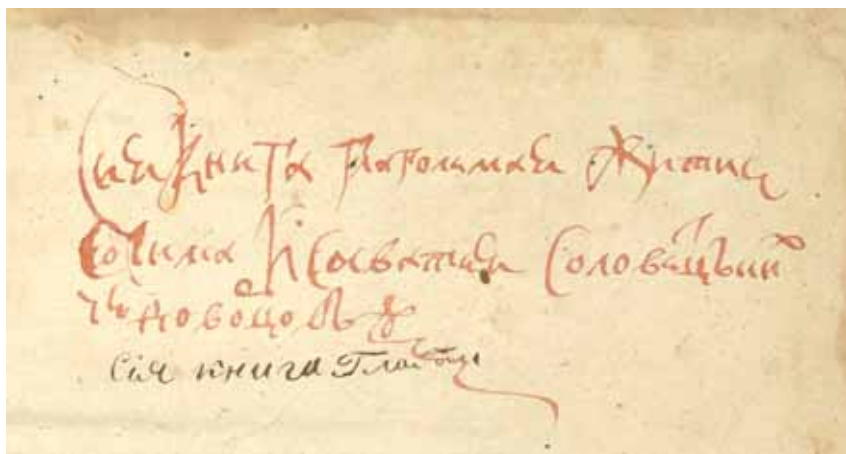 Сия Книга глаголимая Житие
Зосима И Саватия Соловецъких
чюдовоцовъ
сія книга Глаголи